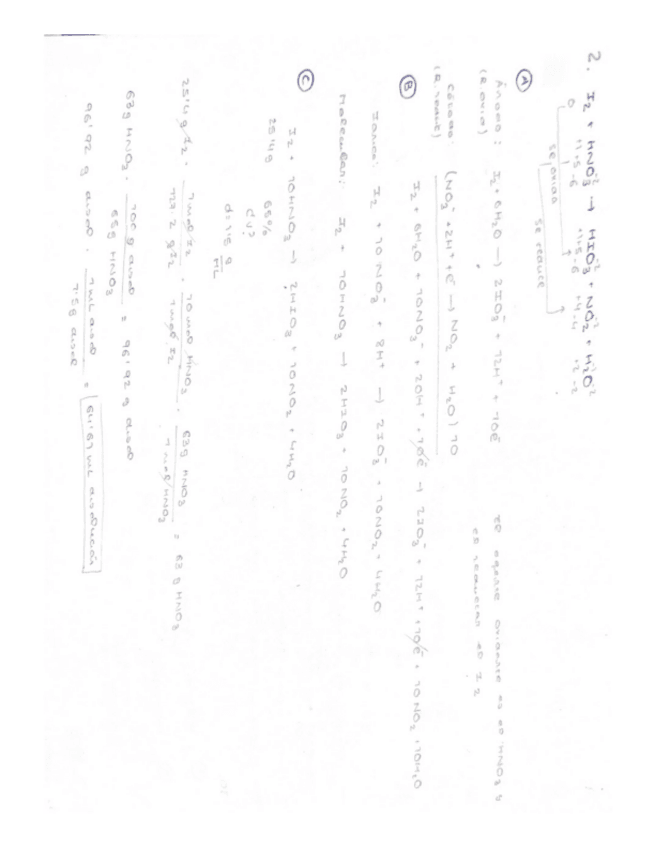 2. I₂ + HNO₃ → HIO₃ + NO₂ + H₂O
0 +1+5-6 +1+5-6 +4-4 +2-2
se oxida
se reduce
A
Ánodo: I₂ + 6H₂O → 2IO₃⁻ + 12H⁺ + 10e⁻
(R. oxid)
el agente oxidante es el HNO₃ y
el reductor el I₂
Cátodo: (NO₃⁻ + 2H⁺ + e⁻ → NO₂ + H₂O) 10
I₂ + 6H₂O + 10NO₃⁻ + 20H⁺ + 10e⁻ → 2IO₃⁻ + 12H⁺ + 10e⁻ + 10NO₂ + 10H₂O
B
Iónica: I₂ + 10NO₃⁻ + 8H⁺ → 2IO₃⁻ + 10NO₂ + 4H₂O
Molecular: I₂ + 10HNO₃ → 2HIO₃ + 10NO₂ + 4H₂O
C
I₂ + 10HNO₃ → 2HIO₃ + 10NO₂ + 4H₂O
25'4 g 65%
¿v?
d=1'5 g/mL
25'4 g I₂ · 1 mol I₂ / · 10 mol HNO₃ / 1 mol I₂ · 63 g HNO₃ / 1 mol HNO₃ = 63 g HNO₃
63 g HNO₃ · 100 g disol / 65 g HNO₃ = 96'92 g disol
96'92 g disol · 1 mL disol / 1'5 g disol = mL disolución